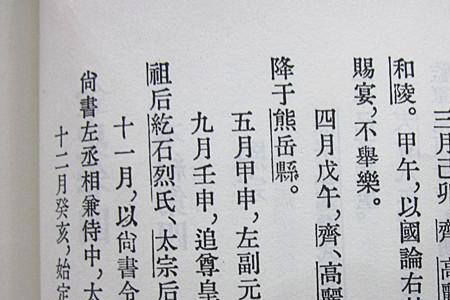 三月己卯,齊、高麗
和陵。甲午,以國論右
賜宴,不舉樂。
四月戊午,齊、高麗
降于熊岳縣。
五月甲申,左副元
九月壬申,追尊皇
祖后紇石烈氏、太宗后
十一月,以尙書令
尙書左丞相兼侍中,太
十二月癸亥,始定